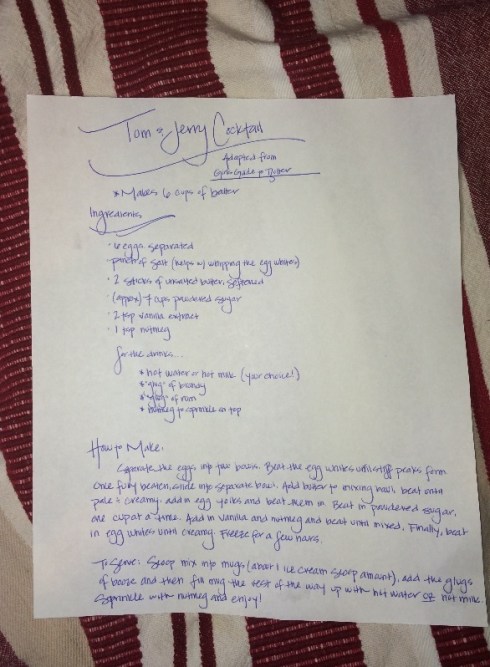 Tom & Jerry Cocktail
Adapted from
Guide to
*Makes 6 cups of batter
Ingredients
· 6 eggs separated
pinch of salt (helps w/ whipping the egg whites)
· 2 sticks of unsalted butter, softened
· (approx) 7 cups powdered sugar
· 2 tsp vanilla extract
· 1 tsp nutmeg
for the drinks...
* hot water or hot milk (your choice!)
* "glug" of brandy
* "glug" of rum
* nutmeg to sprinkle on top
How to Make:
Separate the eggs into two bowls. Beat the egg whites until stiff peaks form
Once fully beaten, slide into separate bowl. Add butter to mixing bowl beat until
pale & creamy. add in egg yolks and beat them in. Beat in powdered sugar,
one cup at a time. Add in vanilla and nutmeg and beat until mixed. Finally, beat
in egg whites until creamy. Freeze for a few hours.
To Serve: Scoop mix into mugs (about 1 ice cream scoop amount), add the glugs
of booze and then fill mug the rest of the way up with hot water OR hot milk.
Sprinkle with nutmeg and enjoy!